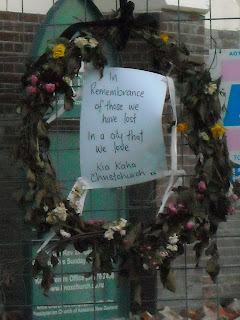 In
Remembrance
of those we
have lost
In a city that
we love
Kia Kaha
Christchurch